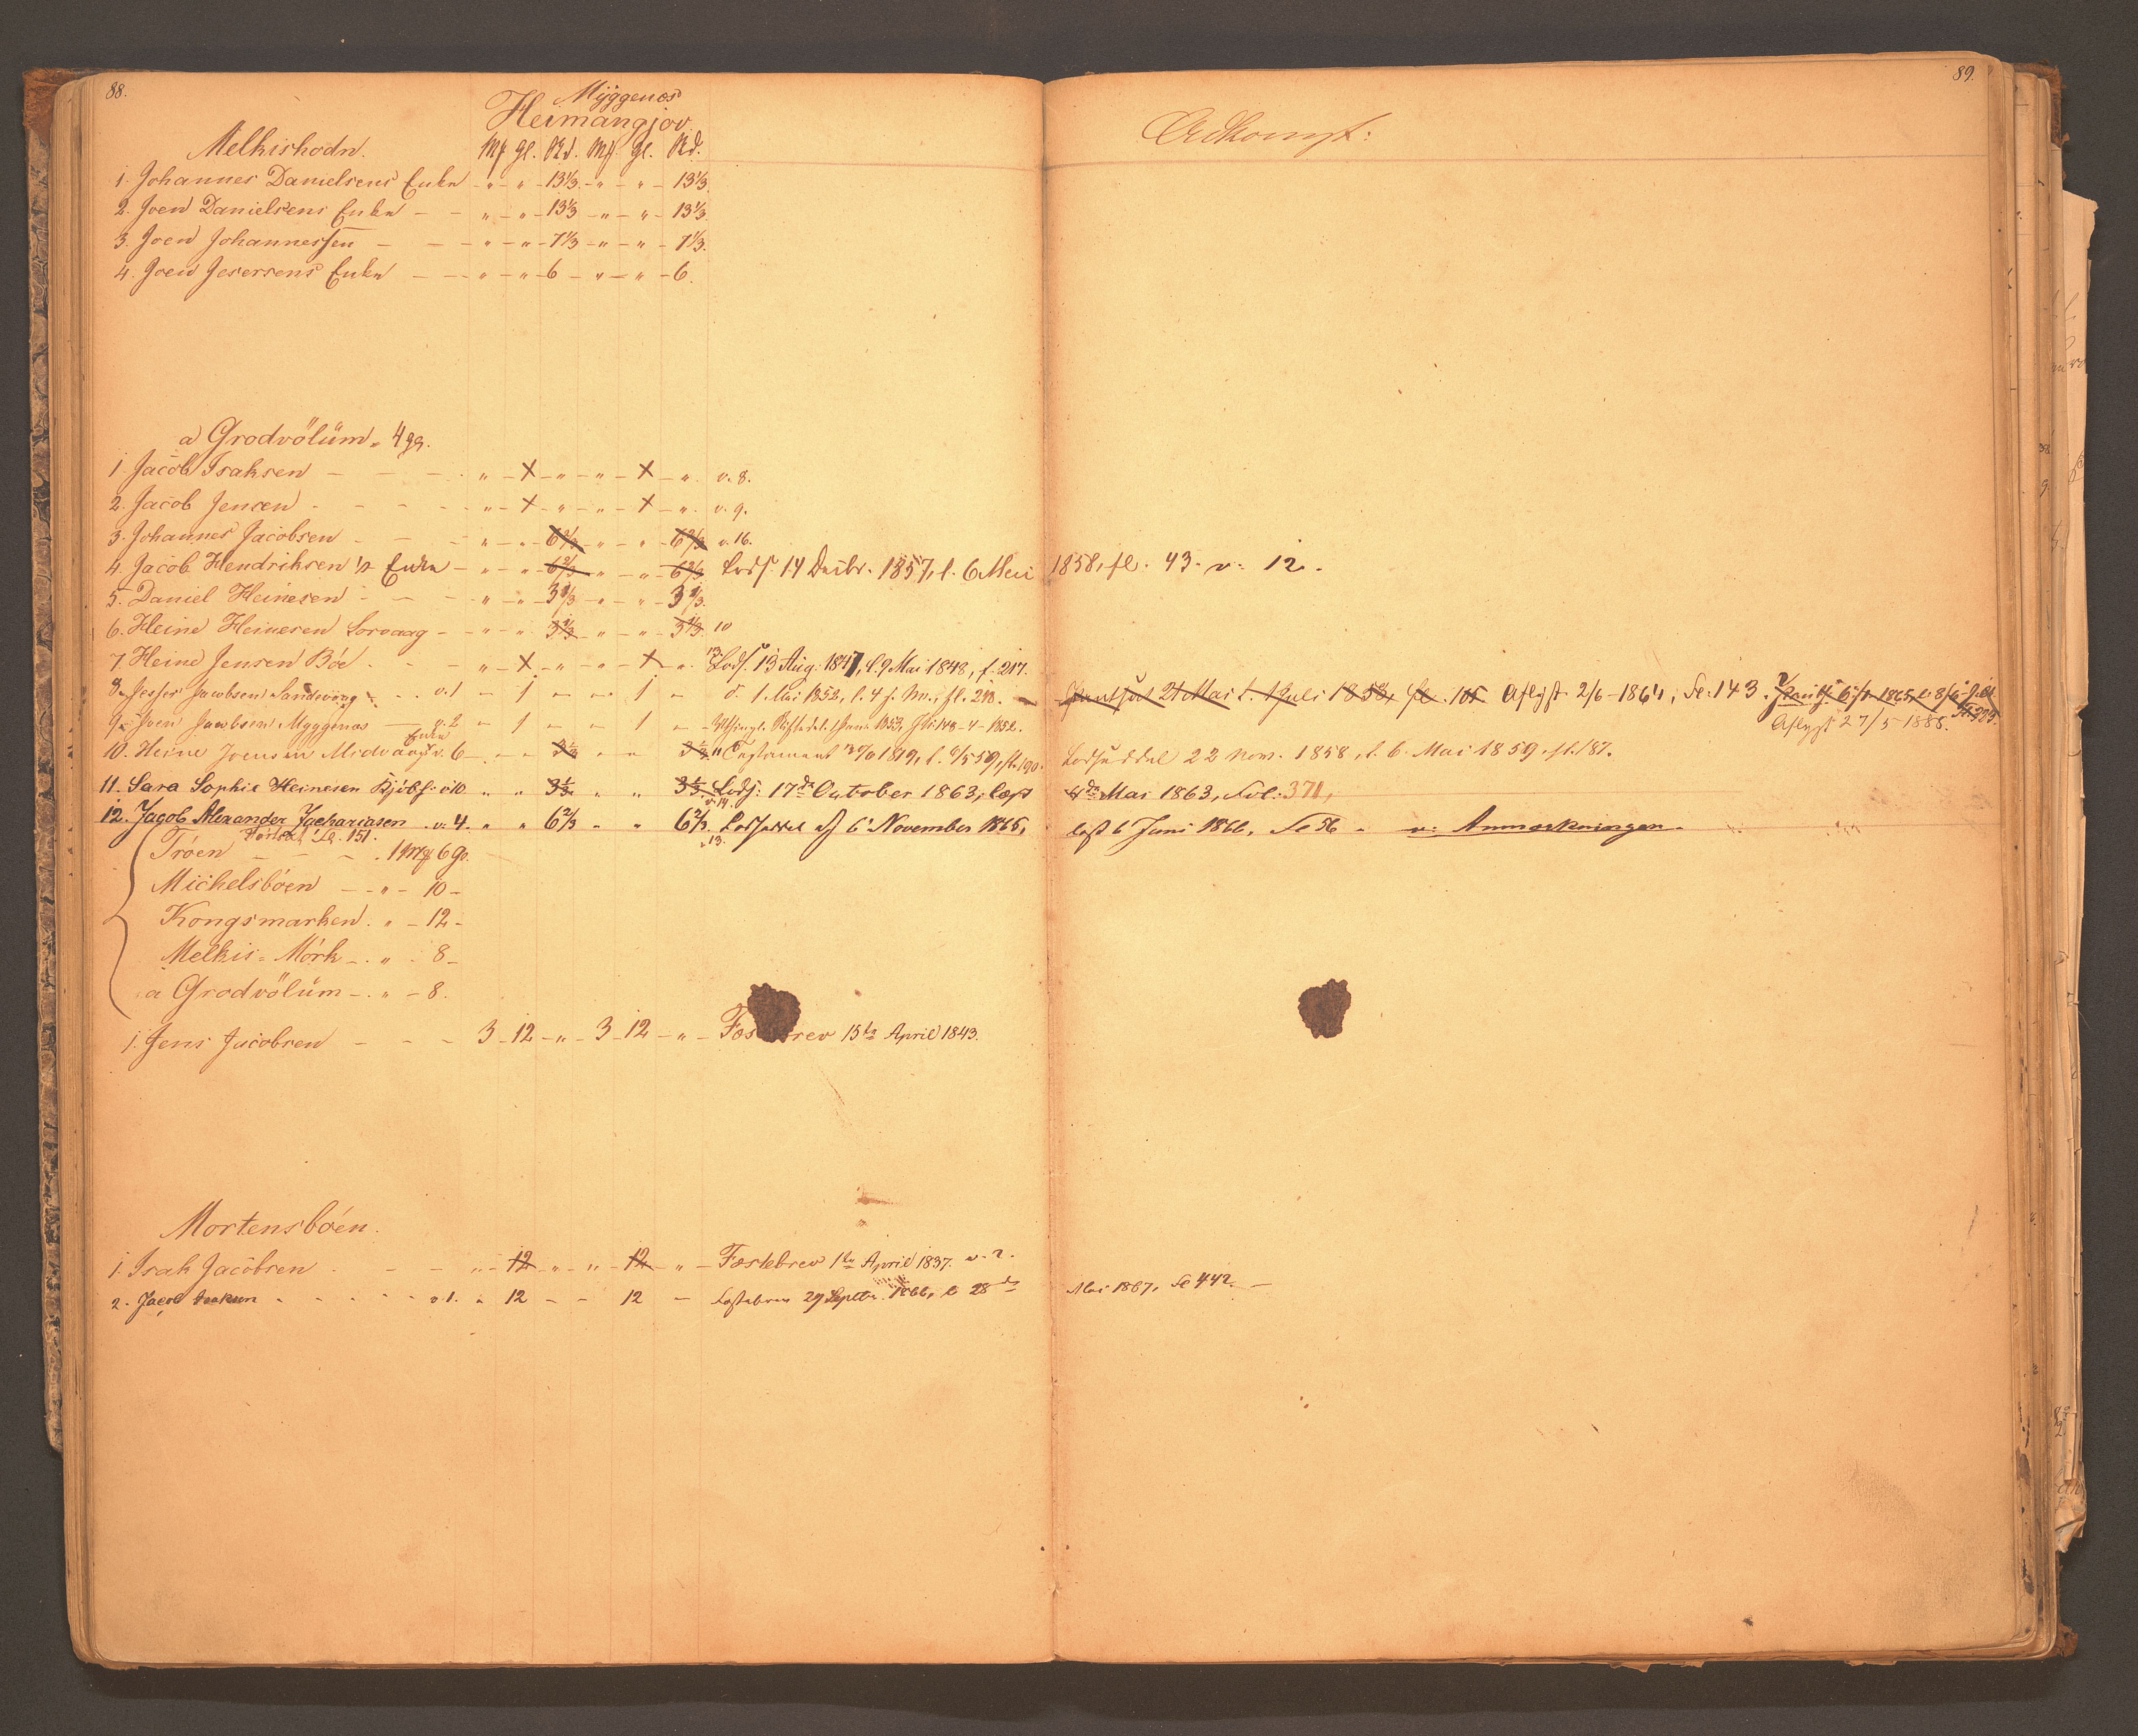 88.
89.
Myggenæs
Heimangjov.
Adkomst:
Melkishodn.
Mk gl. Sk. Mk. gl. Sk.
1. Johannes Danielsens Enke - " - " - 13 1/3 - " - " - 13 1/3.
2. Joen Danielsens Enke - - " - " - 13 1/3 - " - " - 13 1/3.
3. Joen Johannessen - - - " - " - 7 1/3 - " - " - 7 1/3.
4. Joen Jesersens Enke - - - " - " - 6 - " - " - 6.
a Grodvölüm. 4 gs.
1. Jacob Isaksen - - - - " - X - " - " - X - " . v. 8.
2. Jacob Jensen - - - - " - X - " - " - X - " . v. 9.
3. Johannes Jacobsen - - - " - " - 6 2/3 - " - " - 6 2/3 v. 16.
4. Jacob Hendriksen 1/2 Enke - " - " - 6 2/3 - " - " - 6 2/3 Lods. 14 Decbr. 1857, l. 6 Mai 1858, fl. 43. v. 12.
5. Daniel Heinesen - - - " - " - 3 1/3 - " - " - 3 1/3.
6. Heine Heinesen Sorvaag - " - " - 3 1/3 - " - " - 3 1/3. 10
7. Heine Jensen Böe . - - " - X - " - " - X - " . 13. Lods. 13 Aug. 1847, l. 9 Mai 1848, f. 217.
8. Jesper Jacobsen Sandevaag - - v. 1 - 1 - - - 1 - d. 1. Mai 1852, l. 4 f. M., fl. 218. - 21 Mai l. 1 Juli 1858, fl. 105 Aflyst 2/6 - 1864, Fl: 143.
Aflyst 27/5 1888.
9. Joen Jacobsen Myggenæs - v. 2 - 1 - - - 1 -
Enke
10. Heine Joensen Midvaag v. 6 - - - 3 1/3 " " 3 1/3. 11 Testament 1819, l. 6/5 59, fl. 190. Lodseddel 22 Nov. 1858, l. 6. Mai 1859, fl. 187.
11. Sara Sophie Heinesen Kjöbs. v 10 " " 3 1/3 " " 3 1/3. Lods: 17de October 1863, læst 4de Mai 1863, Fol: 371,
v. 14.
12. Jacob Alexander Zachariasen . v. 4. " " 6 2/3 " " 6 2/3. Lodseddel af 6 November 1865, læst 6 Juni 1866, Fo 56 - v: Anmærkningen.
v. 13.
Fortsat Fol. 151.
Tröen - - - . 1 Mk 6 Gl.
Michelsböen - - " - 10 -
Kongsmarken . " - 12 -
Melkis=Mörk - . " - 8 -
a Grodvölüm - . " - 8.
1. Jens Jacobsen - - - 3 - 12 - " - 3 - 12 - " - Fæstebrev 15de April 1843.
Mortensböen.
1. Isak Jacobsen . - - " - 12 - " - " - 12 - " - Fæstebrev 1ste April 1837. v. 2.
2. Jacob Isaksen - - - - - v 1. " 12 - - 12 - Fæstebrev 29 Septbr. 1866, l 28de Mai 1867, Fo 442. -